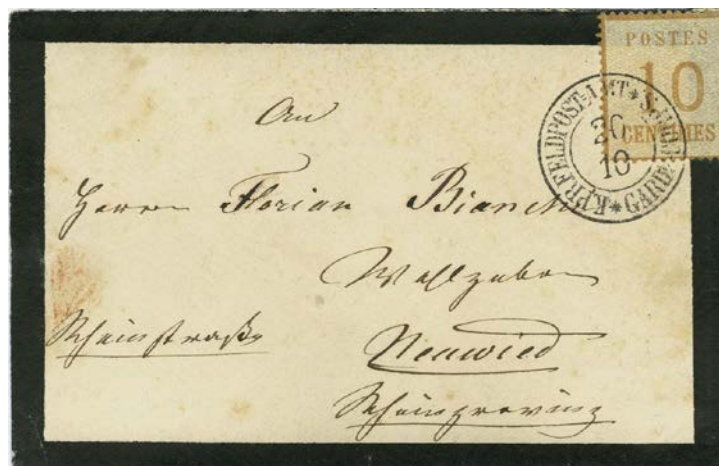 POSTES
10
CENTIMES
K.PR.FELDPOST-AMT * GARDE
20
10
An
Herrn Florian Bianchi
Wohlgeboren
Rheinstraße
Neuwied
Rheinprovinz